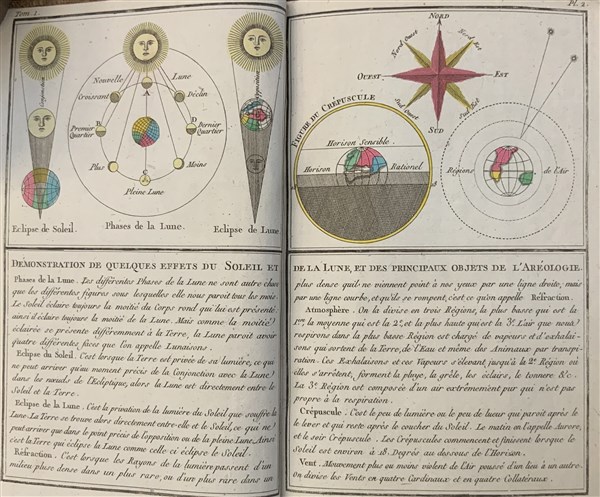 Tom. 1.
Nouvelle Lune
Croissant
Déclin
A
Premier Quartier
B
D
Dernier Quartier
Plus
Moins
C
Pleine Lune
Conjonction
Opposition
Eclipse de Soleil.
Phases de la Lune.
Eclipse de Lune
DÉMONSTRATION DE QUELQUES EFFETS DU SOLEIL ET
Phases de la Lune. Les différentes Phases de la Lune ne sont autre chose
que les différentes figures sous lesquelles elle nous paroit tous les mois.
Le Soleil éclaire toujours la moitié du Corps rond qui lui est présenté
ainsi il éclaire toujours la moitié de la Lune. Mais comme la moitié
éclairée se présente différemment à la Terre, la Lune paroit avoir
quatre différentes faces que l'on appelle Lunaisons.
Eclipse du Soleil. C'est lorsque la Terre est privée de sa lumière, ce qui
ne peut arriver qu'au moment précis de la Conjonction avec la Lune
dans les nœuds de l'Ecliptique, alors la Lune est directement entre le
Soleil et la Terre.
Eclipse de la Lune. C'est la privation de la lumière du Soleil que souffre la
Lune. La Terre se trouve alors directement entre-elle et le Soleil, ce qui ne
peut arriver que dans le point précis de l'opposition ou de la pleine Lune. Ainsi
c'est la Terre qui éclipse la Lune comme celle-ci éclipse le Soleil.
Réfraction. C'est lorsque les Rayons de la lumière passent d'un
milieu plus dense dans un plus rare, ou d'un plus rare dans un
Pl. 2
NORD
Nord Ouest
Nord Est
OUEST
EST
Sud Ouest
Sud Est
SUD
FIGURE DU CRÉPUSCULE
Horison Sensible.
Horison Rationel
Régions de l'Air
DE LA LUNE, ET DES PRINCIPAUX OBJETS DE L'ARÉOLOGIE.
plus dense qu'il ne viennent point à nos yeux par une ligne droite, mais
par une ligne courbe, et qu'ils se rompent, c'est ce qu'on appelle Refraction.
Atmosphère. On la divise en trois Régions, la plus basse qui est la
1ere. la moyenne qui est la 2e. et la plus haute qui est la 3e. L'air que nous
respirons dans la plus basse Région est chargé de vapeurs et d'exhalai-
sons qui sortent de la Terre, de l'Eau et même des Animaux par transpi-
ration. Ces Exhalaisons et ces Vapeurs s'élevant jusqu'à la 2e. Région où
elles s'arrêtent, forment la pluye, la grêle, les éclairs, le tonnere &c.
La 3e. Région est composée d'un air extrêmement pur qui n'est pas
propre à la respiration.
Crépuscule. C'est le peu de lumière ou le peu de lueur qui paroit après le
le lever et qui reste après le coucher du Soleil. Le matin on l'appelle Aurore,
et le soir Crépuscule. Les Crépuscules commencent et finissent lorsque le
Soleil est environ à 18. Degrés au dessous de l'Horison.
Vent. Mouvement plus ou moins violent de l'Air poussé d'un lieu à un autre.
On divise les Vents en quatre Cardinaux et en quatre Collatéraux.